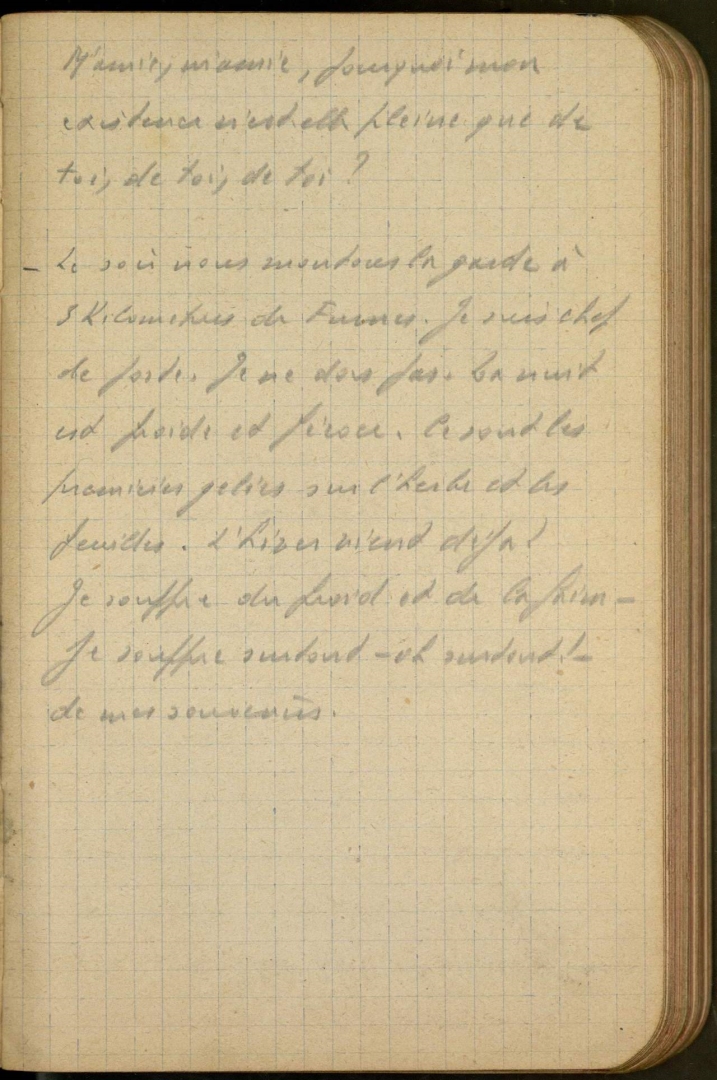 M'amie, m'amie, pourquoi mon
existence n'est elle pleine que de
toi, de toi, de toi ?
- Le soir nous montons la garde à
3 Kilomètres de Furnes. Je suis chef
de poste. Je ne dors pas. La nuit
est froide et féroce. Ce sont les
premières gelées sur l'herbe et les
feuilles. L'hiver vient déjà !
Je souffre du froid et de la faim -
Je souffre surtout - oh surtout ! -
de mes souvenirs.